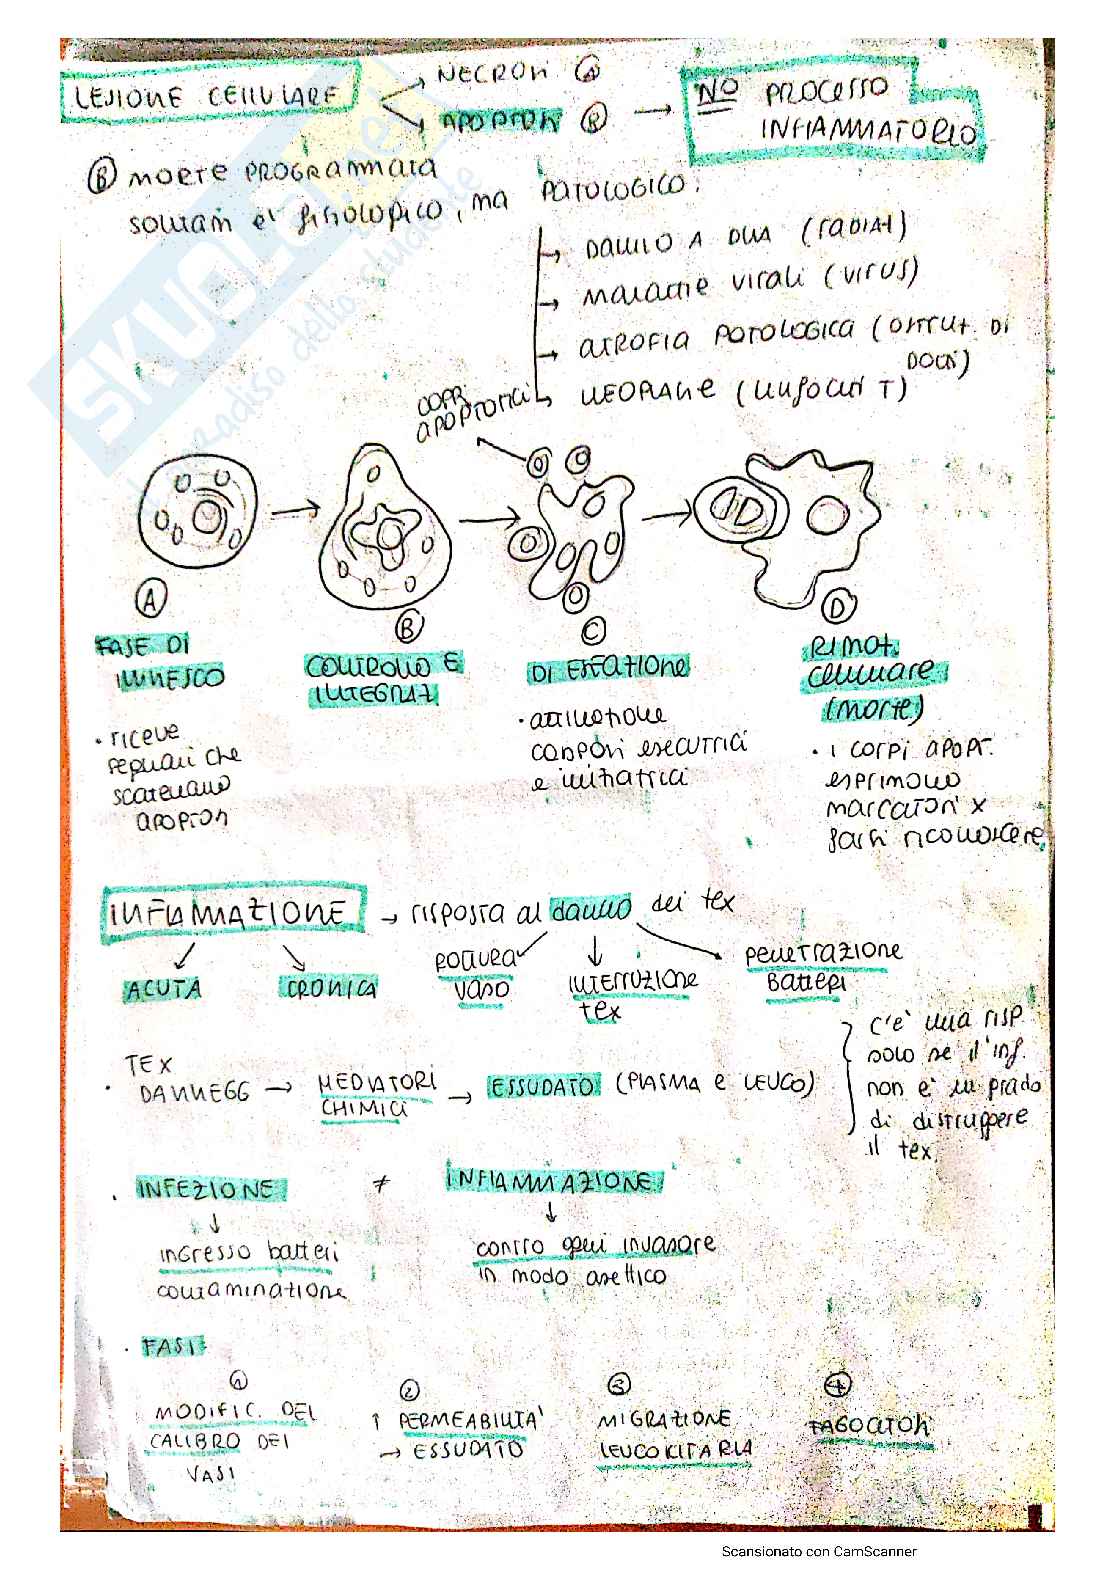 LESIONE CELLULARE
→ NECROSI Ⓐ
→ APOPTOSI Ⓑ → NO PROCESSO
INFIAMMATORIO
Ⓑ MORTE PROGRAMMATA
solitam è fisiologico, ma PATOLOGICO:
→ DANNO A DNA (RADIAZ)
→ MALATTIE VIRALI (VIRUS)
→ ATROFIA PATOLOGICA (OSTRUZ. DI
DOTTI)
→ NEOPLASIE (linfociti T)
CORPI
APOPTOTICI
Ⓐ
FASE DI
INNESCO
• riceve
segnali che
scatenano
apoptosi
Ⓑ
CONTROLLO E
INTEGRAZ
Ⓒ
DI ESECUZIONE
• attivazione
caspasi esecutrici
e iniziatrici
Ⓓ
RIMOZ.
cellulare
(morte)
• i corpi apopt.
esprimono
marcatori x
farsi riconoscere
INFIAMMAZIONE → risposta al danno dei tex
ACUTA
CRONICA
ROTTURA
VASO
INTERRUZIONE
tex
PENETRAZIONE
Batteri
• TEX
DANNEGG → MEDIATORI
CHIMICI → ESSUDATO (PLASMA E LEUCO)
C'è una risp
solo se l'inf.
non è in grado
di distruggere
il tex.
• INFEZIONE ≠ INFIAMMAZIONE
↓
ingresso batteri
contaminazione
↓
contro ogni invasore
in modo asettico
• FASI
①
MODIFIC. DEL
CALIBRO DEI
VASI
②
↑ PERMEABILITA'
→ ESSUDATO
③
MIGRAZIONE
LEUCOCITARIA
④
FAGOCITOSI
SKUOLA.net
il paradiso dello studente
Scansionato con CamScanner